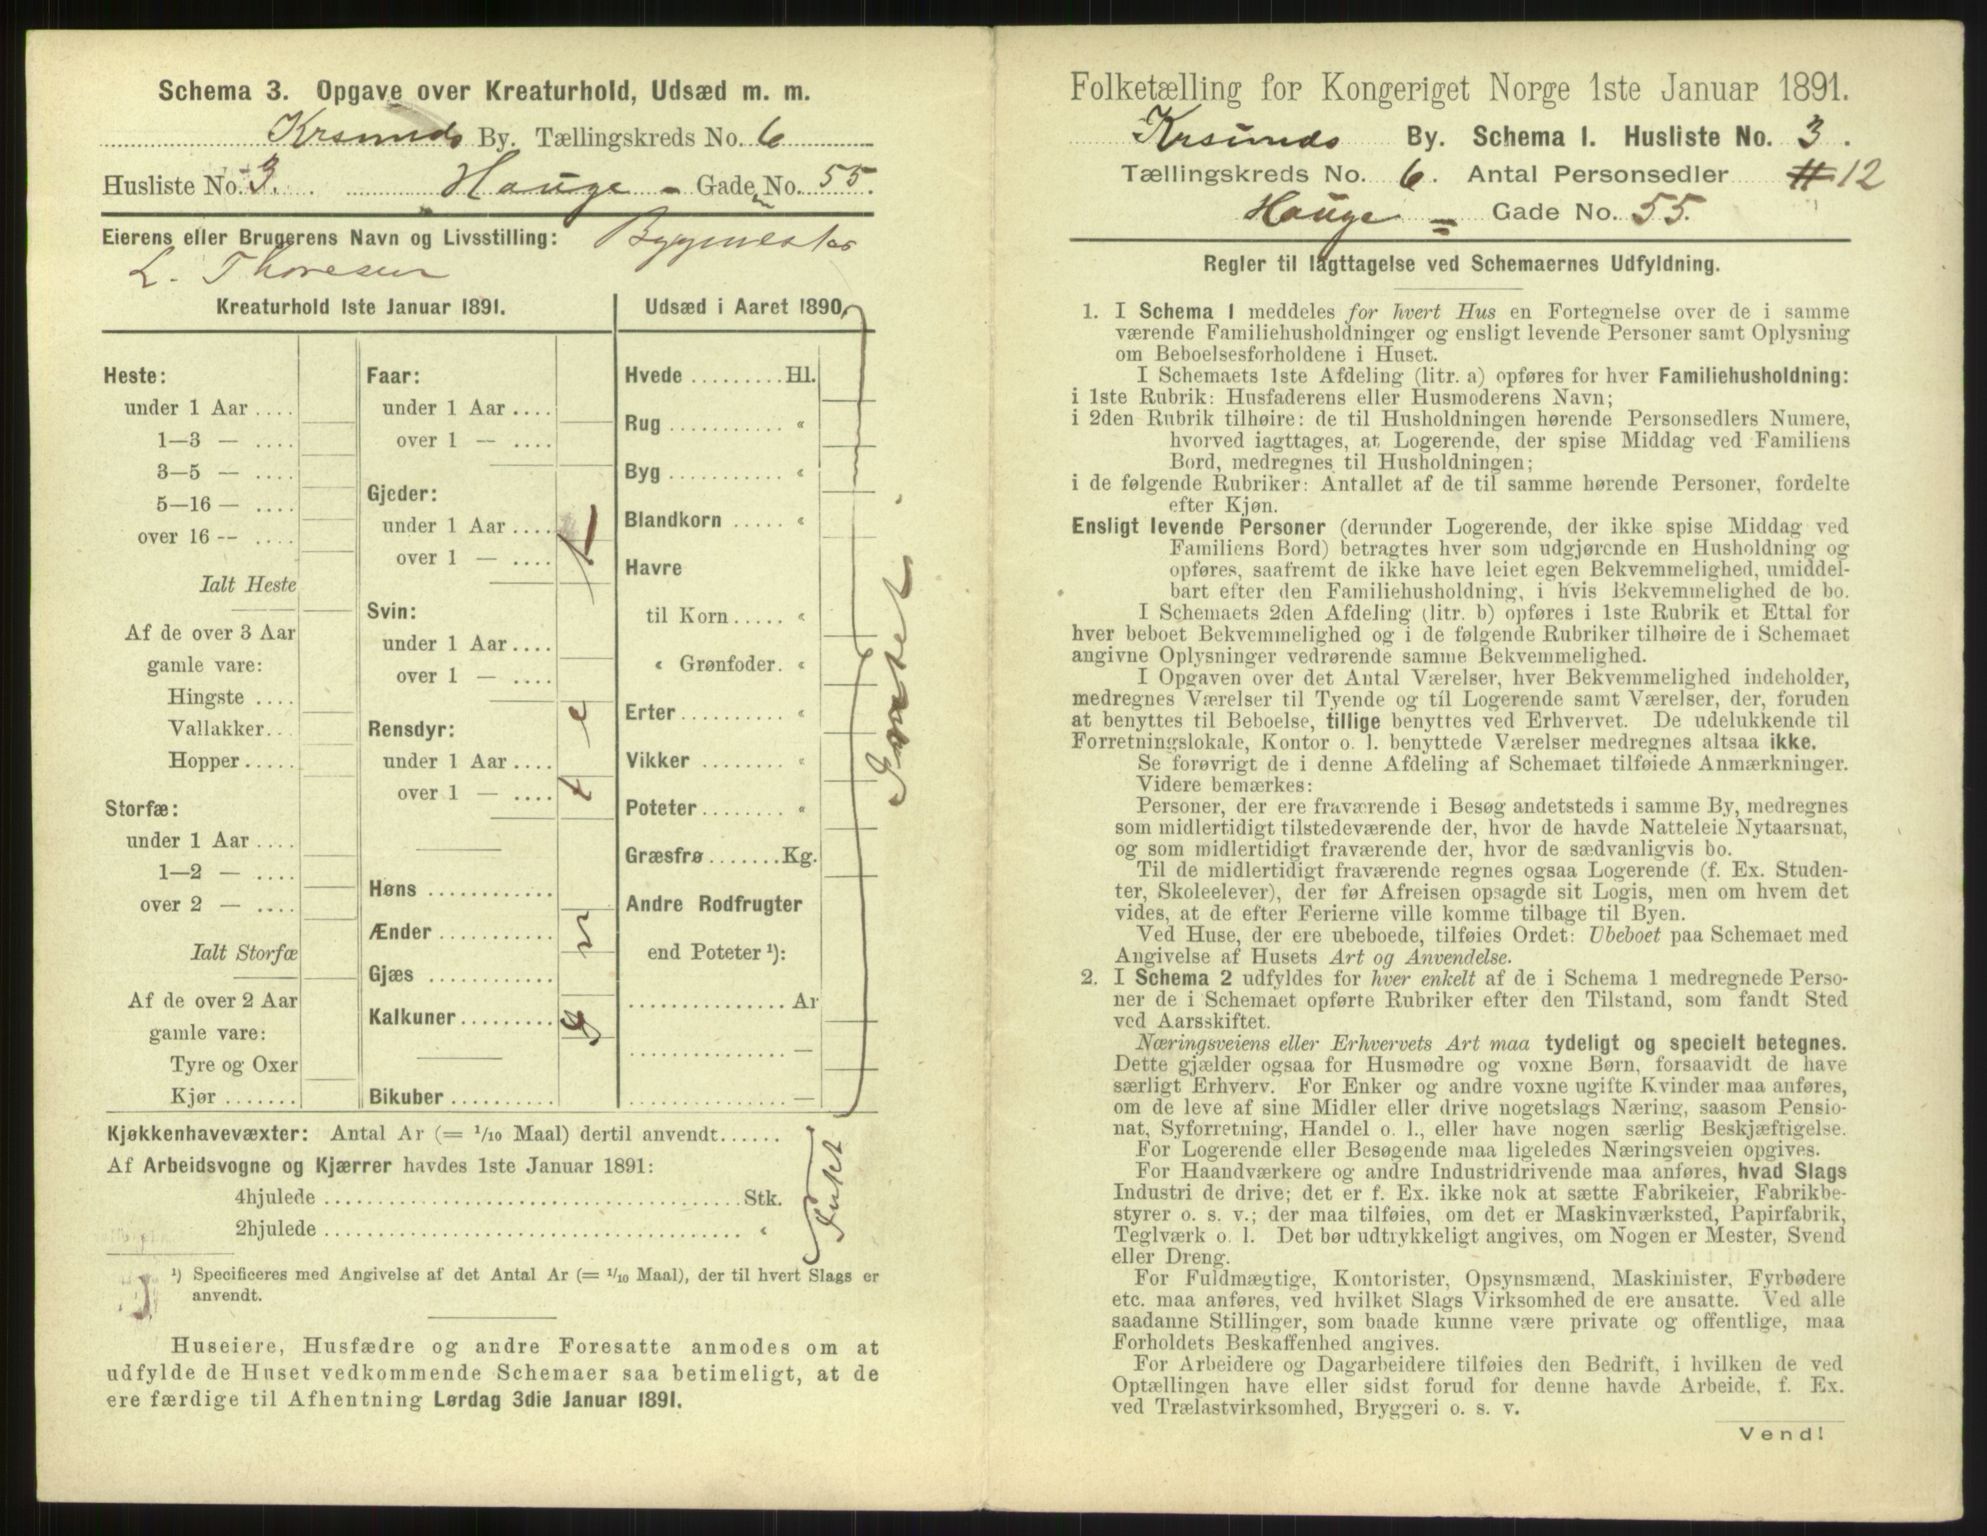 Schema 3. Opgave over Kreaturhold, Udsæd m. m.
Krsunds By. Tællingskreds No. 6
Husliste No. 3. Hauge - Gade No. 55.
Eierens eller Brugerens Navn og Livsstilling: Bygmester
L. Thoresen
Kreaturhold 1ste Januar 1891.
Heste:
under 1 Aar ....
1—3 — ....
3—5 — ....
5—16 — ....
over 16 — ....
Ialt Heste
Af de over 3 Aar
gamle vare:
Hingste ....
Vallakker...
Hopper .....
Storfæ:
under 1 Aar ....
1—2 — ....
over 2 — ....
Ialt Storfæ
Af de over 2 Aar
gamle vare:
Tyre og Oxer
Kjør .......
Faar:
under 1 Aar ....
over 1 — ....
Gjeder:
under 1 Aar ....
over 1 — ....
Svin:
under 1 Aar ....
over 1 — ....
Rensdyr:
under 1 Aar ....
over 1 — ....
Høns ............
Ænder ...........
Gjæs ............
Kalkuner .........
Bikuber ..........
Udsæd i Aaret 1890.
Hvede ......... Hl.
Rug ........... «
Byg ........... «
Blandkorn ..... «
Havre
til Korn ..... «
« Grønfoder. «
Erter .......... «
Vikker ........ «
Poteter ........ «
Græsfrø ....... Kg.
Andre Rodfrugter
end Poteter ¹):
............... Ar
............... —
............... —
Intet
Kjøkkenhavevæxter: Antal Ar (= 1/10 Maal) dertil anvendt......
Af Arbeidsvogne og Kjærrer havdes 1ste Januar 1891:
4hjulede ........................ Stk.
2hjulede ........................ «
Intet
¹) Specificeres med Angivelse af det Antal Ar (= 1/10 Maal), der til hvert Slags er
anvendt.
Huseiere, Husfædre og andre Foresatte anmodes om at
udfylde de Huset vedkommende Schemaer saa betimeligt, at de
ere færdige til Afhentning Lørdag 3die Januar 1891.
Folketælling for Kongeriget Norge 1ste Januar 1891.
Krsunds By. Schema 1. Husliste No. 3.
Tællingskreds No. 6. Antal Personsedler 12
Hauge = Gade No. 55.
Regler til Iagttagelse ved Schemaernes Udfyldning.
1. I Schema 1 meddeles for hvert Hus en Fortegnelse over de i samme
værende Familiehusholdninger og ensligt levende Personer samt Oplysning
om Beboelsesforholdene i Huset.
I Schemaets 1ste Afdeling (litr. a) opføres for hver Familiehusholdning:
i 1ste Rubrik: Husfaderens eller Husmoderens Navn;
i 2den Rubrik tilhøire: de til Husholdningen hørende Personsedlers Numere,
hvorved iagttages, at Logerende, der spise Middag ved Familiens
Bord, medregnes til Husholdningen;
i de følgende Rubriker: Antallet af de til samme hørende Personer, fordelte
efter Kjøn.
Ensligt levende Personer (derunder Logerende, der ikke spise Middag ved
Familiens Bord) betragtes hver som udgjørende en Husholdning og
opføres, saafremt de ikke have leiet egen Bekvemmelighed, umiddel-
bart efter den Familiehusholdning, i hvis Bekvemmelighed de bo.
I Schemaets 2den Afdeling (litr. b) opføres i 1ste Rubrik et Ettal for
hver beboet Bekvemmelighed og i de følgende Rubriker tilhøire de i Schemaet
angivne Oplysninger vedrørende samme Bekvemmelighed.
I Opgaven over det Antal Værelser, hver Bekvemmelighed indeholder,
medregnes Værelser til Tyende og til Logerende samt Værelser, der, foruden
at benyttes til Beboelse, tillige benyttes ved Erhvervet. De udelukkende til
Forretningslokale, Kontor o. l. benyttede Værelser medregnes altsaa ikke.
Se forøvrigt de i denne Afdeling af Schemaet tilføiede Anmærkninger.
Videre bemærkes:
Personer, der ere fraværende i Besøg andetsteds i samme By, medregnes
som midlertidigt tilstedeværende der, hvor de havde Natteleie Nytaarsnat,
og som midlertidigt fraværende der, hvor de sædvanligvis bo.
Til de midlertidigt fraværende regnes ogsaa Logerende (f. Ex. Studen-
ter, Skoleelever), der før Afreisen opsagde sit Logis, men om hvem det
vides, at de efter Ferierne ville komme tilbage til Byen.
Ved Huse, der ere ubeboede, tilføies Ordet: Ubeboet paa Schemaet med
Angivelse af Husets Art og Anvendelse.
2. I Schema 2 udfyldes for hver enkelt af de i Schema 1 medregnede Perso-
ner de i Schemaet opførte Rubriker efter den Tilstand, som fandt Sted
ved Aarsskiftet.
Næringsveiens eller Erhvervets Art maa tydeligt og specielt betegnes.
Dette gjælder ogsaa for Husmødre og voxne Børn, forsaavidt de have
særligt Erhverv. For Enker og andre voxne ugifte Kvinder maa anføres,
om de leve af sine Midler eller drive nogetslags Næring, saasom Pensio-
nat, Syforretning, Handel o. l., eller have nogen særlig Beskjæftigelse.
For Logerende eller Besøgende maa ligeledes Næringsveien opgives.
For Haandværkere og andre Industridrivende maa anføres, hvad Slags
Industri de drive; det er f. Ex. ikke nok at sætte Fabrikeier, Fabrikbe-
styrer o. s. v.; der maa tilføies, om det er Maskinværksted, Papirfabrik,
Teglværk o. l. Det bør udtrykkeligt angives, om Nogen er Mester, Svend
eller Dreng.
For Fuldmægtige, Kontorister, Opsynsmænd, Maskinister, Fyrbødere
etc. maa anføres, ved hvilket Slags Virksomhed de ere ansatte. Ved alle
saadanne Stillinger, som baade kunne være private og offentlige, maa
Forholdets Beskaffenhed angives.
For Arbeidere og Dagarbeidere tilføies den Bedrift, i hvilken de ved
Optællingen have eller sidst forud for denne havde Arbeide, f. Ex.
ved Trælastvirksomhed, Bryggeri o. s. v.
Vend!